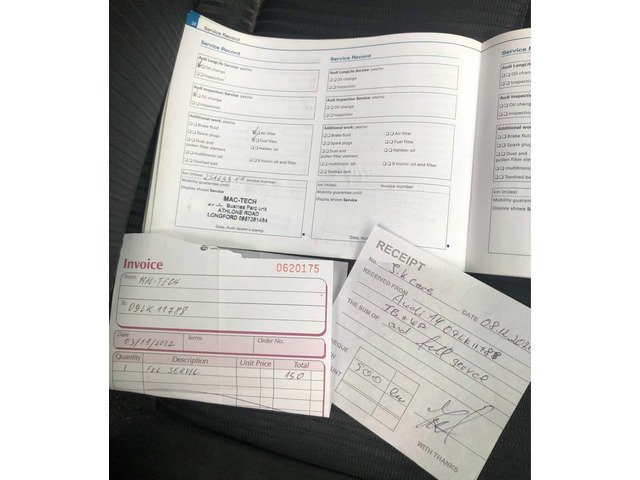 24
Service Record
Service Record
Audi LongLife Service: yes/no
Oil change
Inspection
Audi Inspection Service: yes/no
Oil change
Inspection
Additional work: yes/no
Brake fluid
Air filter
Spark plugs
Fuel filter
Dust and
pollen filter element
Haldex: oil
multitronic: oil
S tronic: oil and filter
Toothed belt
km (miles)
Invoice number
Mobility guarantee until:
Display shows Service
MAC-TECH
Busines Parc unit
ATHLONE ROAD
LONGFORD 0857381484
Date, Audi dealer's stamp
Service Record
Audi LongLife Service: yes/no
Oil change
Inspection
Audi Inspection Service: yes/no
Oil change
Inspection
Additional work: yes/no
Brake fluid
Air filter
Spark plugs
Fuel filter
Dust and
pollen filter element
Haldex: oil
multitronic: oil
S tronic: oil and filter
Toothed belt
km (miles)
Invoice number
Mobility guarantee until:
Display shows Service
Date, Audi dealer's stamp
Service
Audi LongLife
Oil change
Inspection
Audi Inspection
Oil change
Inspection
Additional work
Brake fluid
Spark plugs
Dust and
pollen filter
multitronic
Toothed
km (miles)
Mobility guarantee
Display shows
Invoice
0620175
From MAC-TECH
To 09LK 11788
Date
Terms
Order No.
03/11/2022
Quantity
Description
Unit Price
Total
1
FUL SERVIC
150
RECEIPT
No.
S.K Cars
DATE 08.12.202
RECEIVED FROM
Audi 14 09LK11788
THE SUM OF
TB + WP
and full service
CHEQUE
500
WITH THANKS